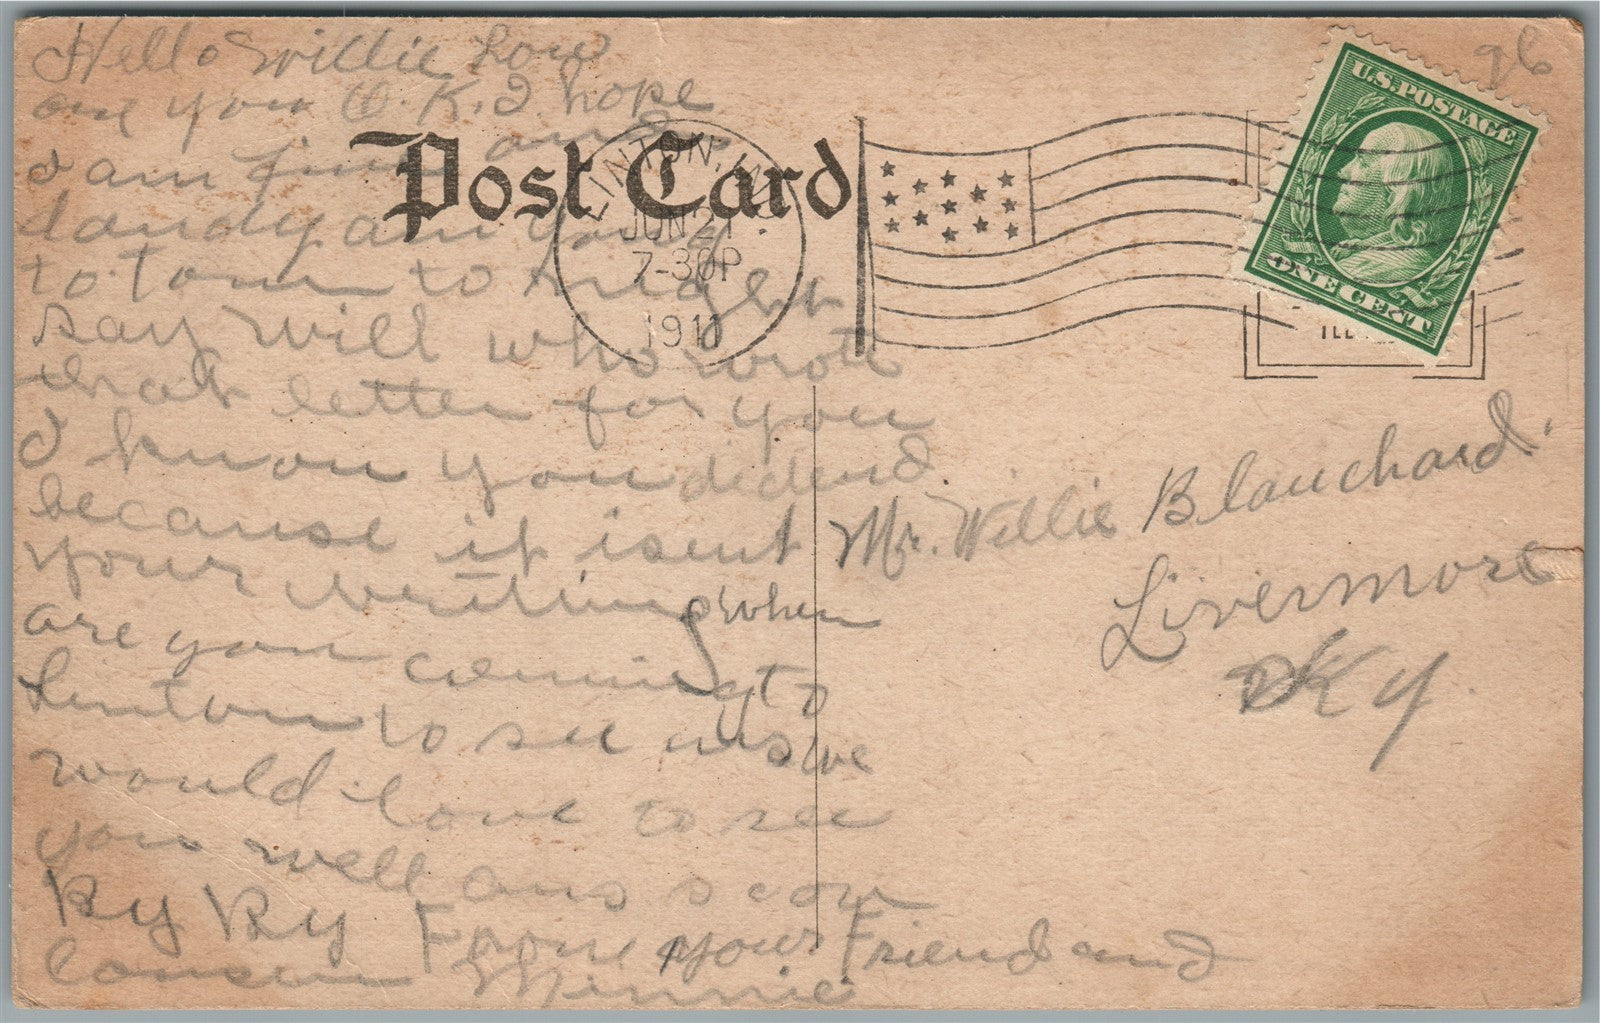 Hello Willie how
are you O.K. I hope
I am fine and
dandy am going
to town to night
say will who wrote
that letter for you
I know you didend
because it isent
your writing when
are you coming to
Linton to see us we
would love to see
you well ans soon
By By From your Friend and
Cousin Minnie
Post Card
LINTON, IND.
JUN 21
7-30P
1911
U.S. POSTAGE
ONE CENT
96
Mr. Willie Blanchard.
Livermore
Ky